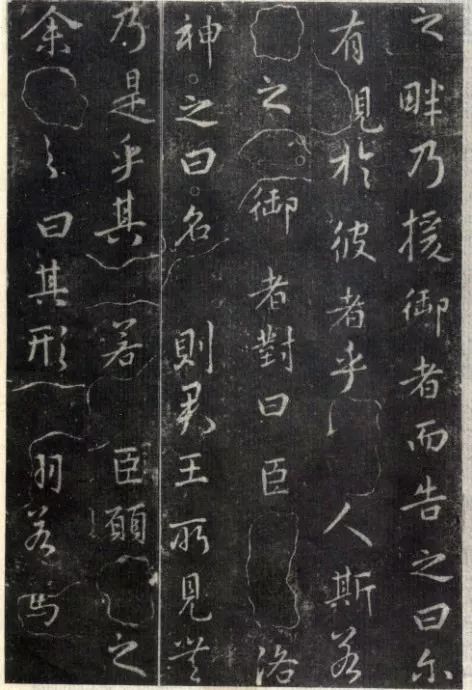 之畔乃援御者而告之曰尔
有見於彼者乎人斯若
之御者對曰臣洛
神之曰名則君王所見無
乃是乎其若臣願之
余之曰其形羽若